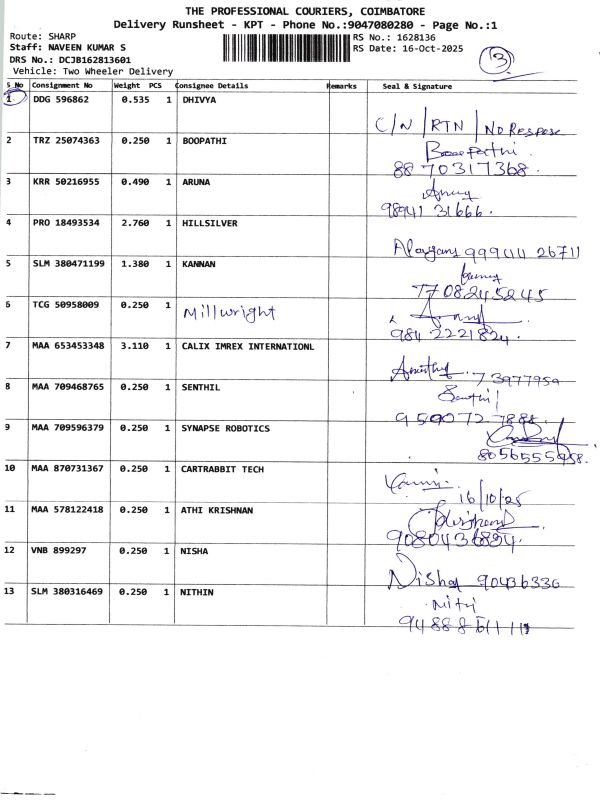 THE PROFESSIONAL COURIERS, COIMBATORE
Delivery Runsheet - KPT - Phone No.:9047080280 - Page No.:1
Route: SHARP
RS No.: 1628136
Staff: NAVEEN KUMAR S
RS Date: 16-Oct-2025
DRS No.: DCJB162813601
13
Vehicle: Two Wheeler Delivery
S No Consignment No Weight PCS Consignee Details Remarks Seal & Signature
1 DDG 596862 0.535 1 DHIVYA
C/N / RTN / No Respose
2 TRZ 25074363 0.250 1 BOOPATHI
Boopathi
88 70317368
3 KRR 50216955 0.490 1 ARUNA
98941 31666
4 PRO 18493534 2.760 1 HILLSILVER
99944 26711
5 SLM 380471199 1.380 1 KANNAN
7708245245
6 TCG 50958009 0.250 1 Millwright
984 2221824
7 MAA 653453348 3.110 1 CALIX IMREX INTERNATIONL
73977959
8 MAA 709468765 0.250 1 SENTHIL
Senthil
9 59072 7888
9 MAA 709596379 0.250 1 SYNAPSE ROBOTICS
8056555958
10 MAA 870731367 0.250 1 CARTRABBIT TECH
16/10/25
11 MAA 578122418 0.250 1 ATHI KRISHNAN
9080436854
12 VNB 899297 0.250 1 NISHA
Nisha 90436336
13 SLM 380316469 0.250 1 NITHIN